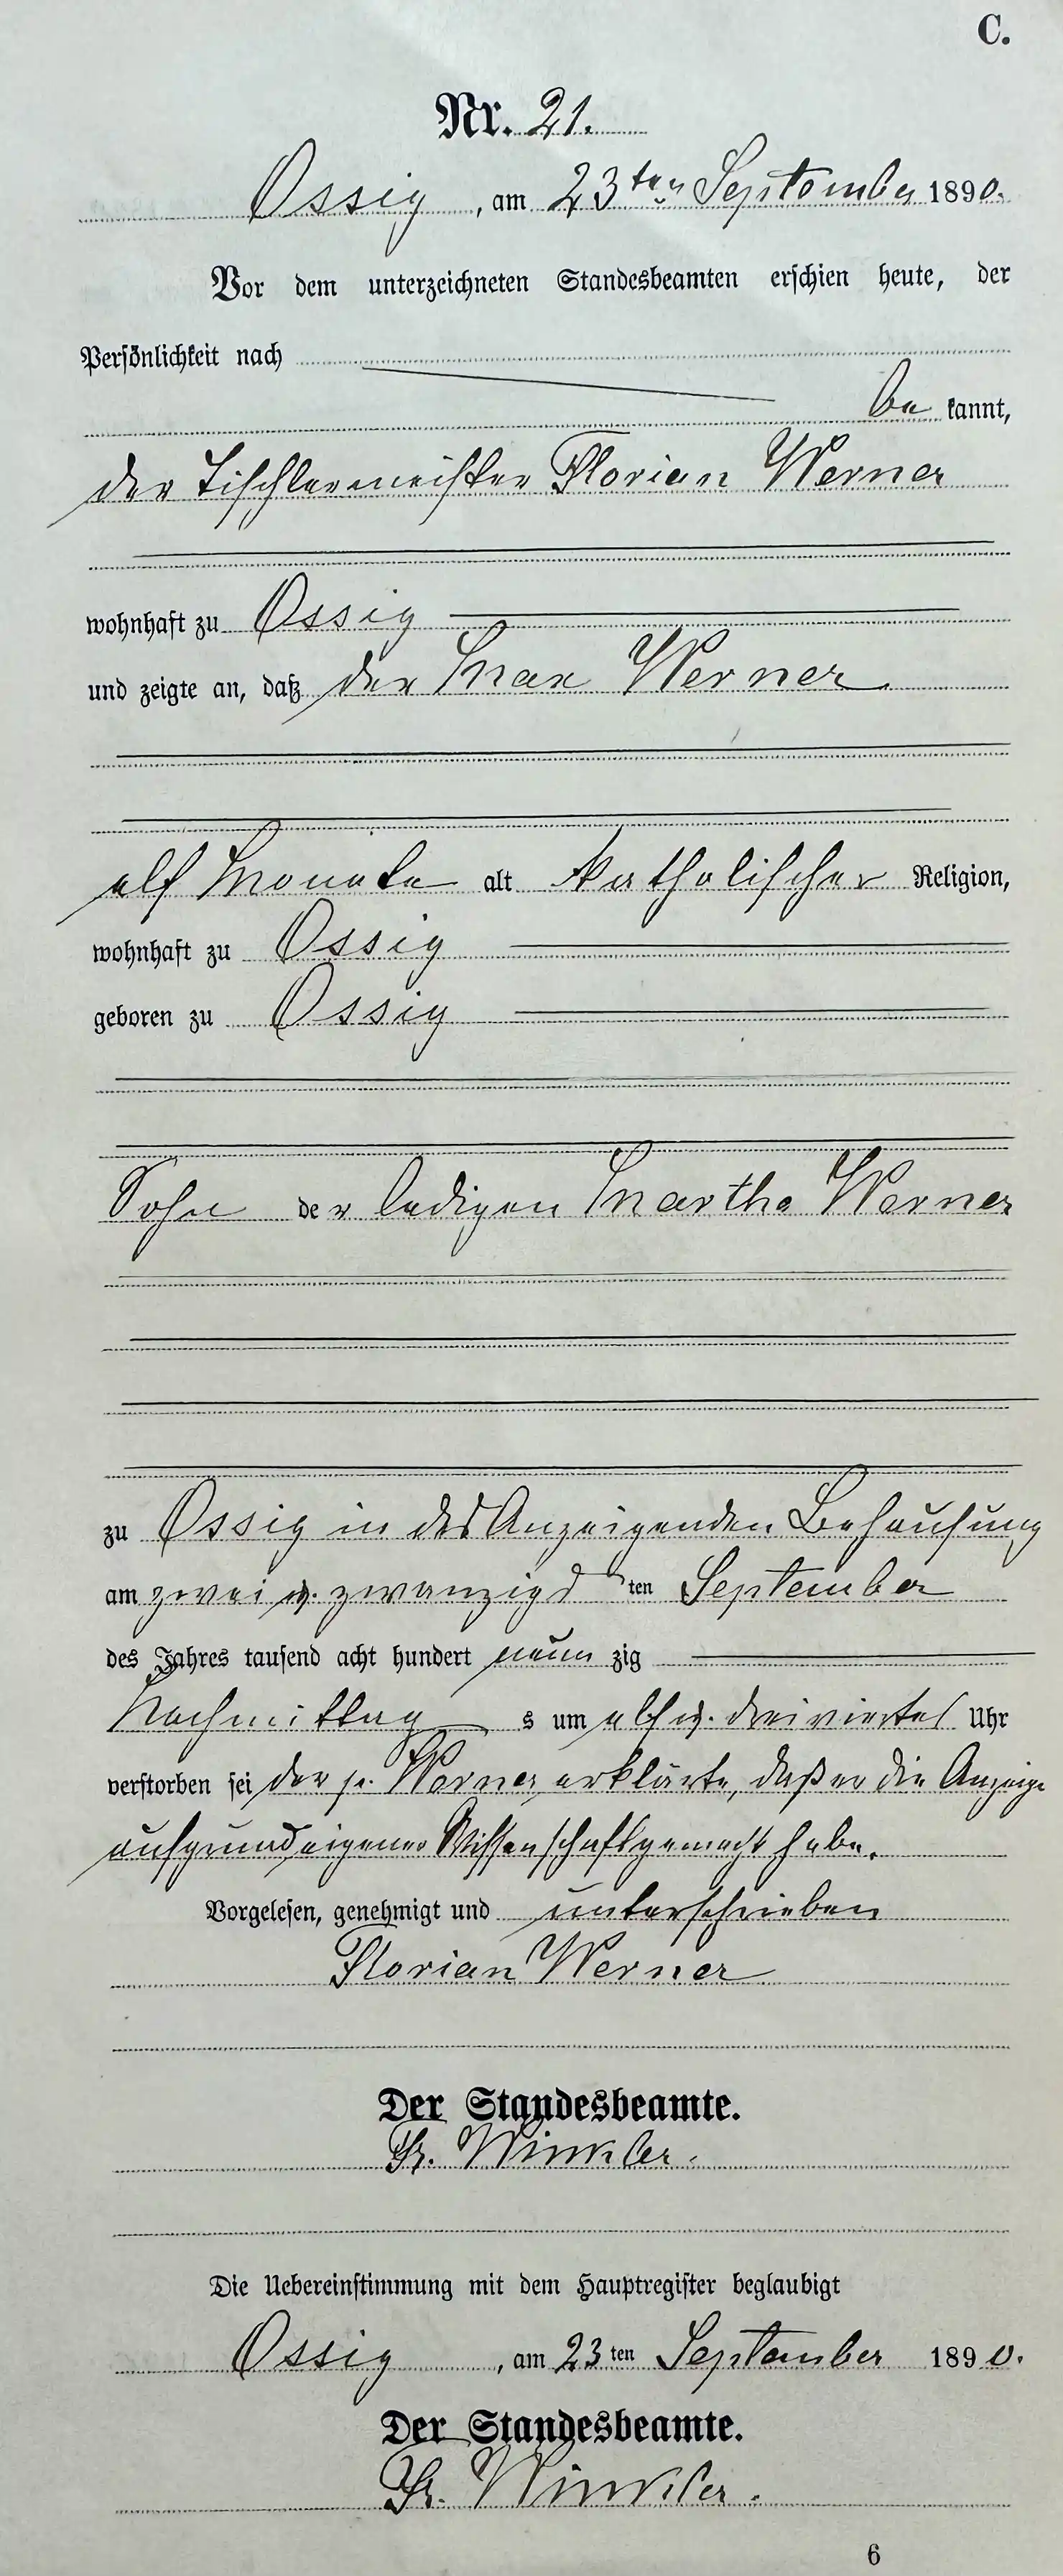 C.
Nr. 21.
Ossig, am 23ten September 1890.
Vor dem unterzeichneten Standesbeamten erschien heute, der
Persönlichkeit nach
be kannt,
der Tischlermeister Florian Werner
wohnhaft zu Ossig
und zeigte an, daß der Max Werner
elf Monate alt katholischer Religion,
wohnhaft zu Ossig
geboren zu Ossig
Sohn der ledigen Martha Werner
zu Ossig in des Anzeigenden Behausung
am zwei u. zwanzigsten September
des Jahres tausend acht hundert neun zig
Nachmittag s um elf u. dreiviertel Uhr
verstorben sei der p. Werner erklärte, daß er die Anzeige
aufgrund eigener Wissenschaft gemacht habe.
Vorgelesen, genehmigt und unterschrieben
Florian Werner
Der Standesbeamte.
Fr. Winkler.
Die Uebereinstimmung mit dem Hauptregister beglaubigt
Ossig, am 23ten September 1890.
Der Standesbeamte.
Fr. Winkler.
6